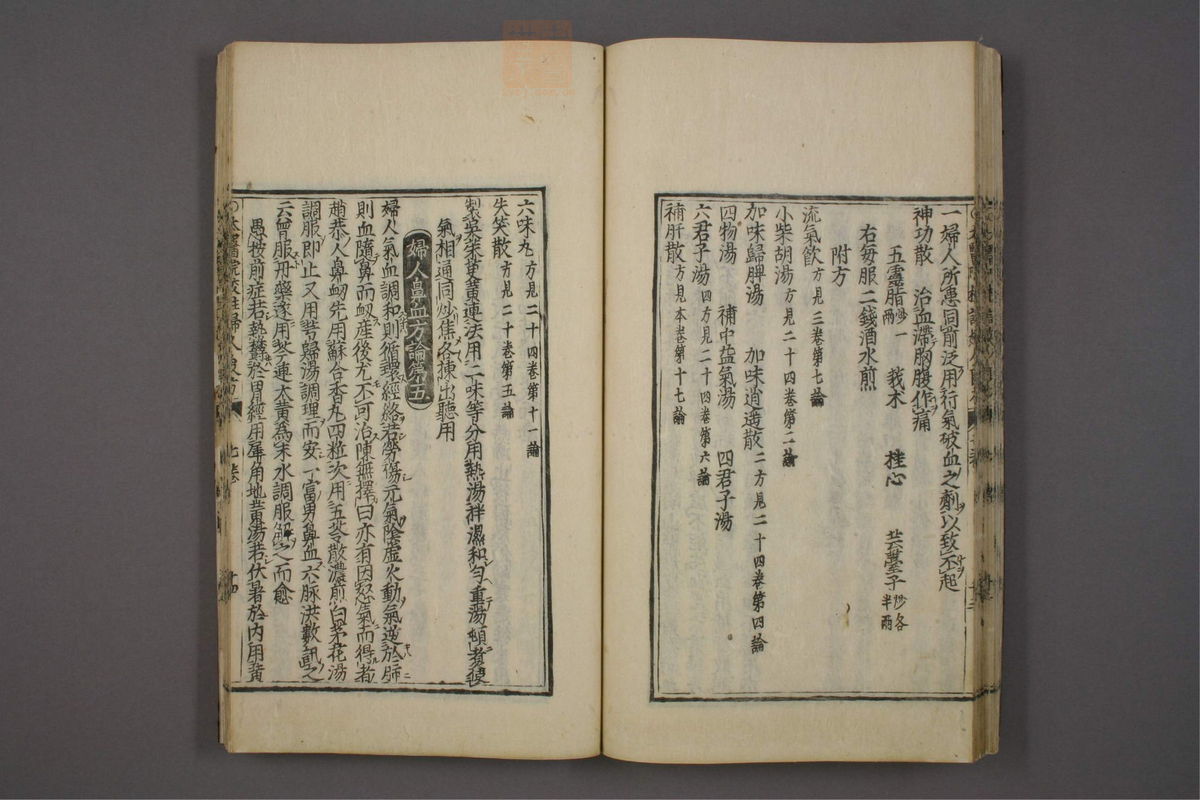 一婦人所患同前泛用行氣破血之劑以致不起
神功散　治血滯胸腹作痛
五靈脂炒一兩　莪朮　桂心　芸薹子炒各半兩
右每服二錢酒水煎
附方
流氣飲方見三卷第七論
小柴胡湯方見二十四卷第二論
加味歸脾湯　加味逍遙散二方見二十四卷第四論
四物湯　補中益氣湯　四君子湯
六君子湯四方見二十四卷第六論
補肝散方見本卷第十七論
六味丸方見二十四卷第十一論
失笑散方見二十卷第五論
製茱萸黃連法用二味等分用熱湯拌濕和勻重湯頓者
氣相通同炒焦各揀出聽用
婦人鼻血方論第五
婦人氣血調和則循環經絡若勞傷元氣陰虛火動氣逆於肺
則血隨鼻而衂產後尤不可治陳無擇曰亦有因怒氣而得者
趙恭人鼻衂先用蘇合香丸四粒次用五苓散濃煎白茅花湯
調服即止又用芎歸湯調理而安一富男鼻血六脉洪數詢之
云曾服丹藥遂用芩連大黃為末水調服解之而愈
愚按前症若熱鬱於胃經用犀角地黃湯若伏暑於內用黃
太醫院校註婦人良方　七卷　十四